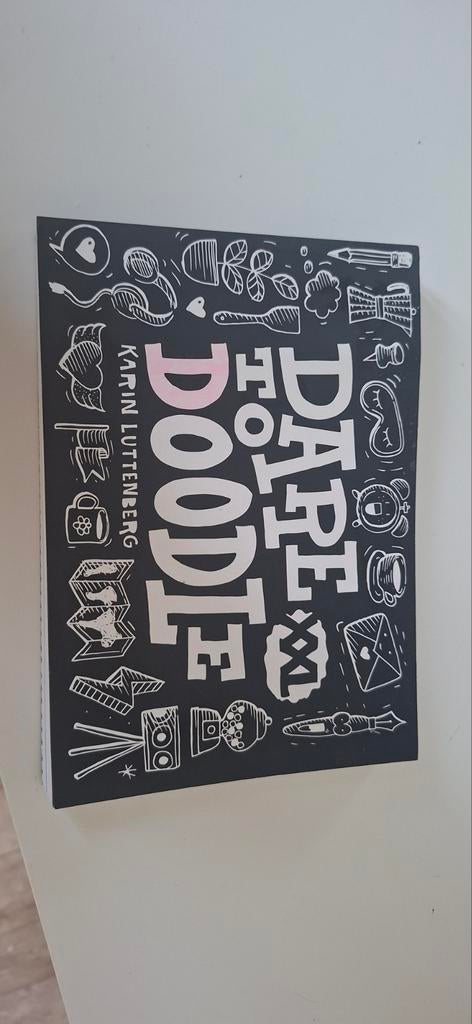 DARE
TO
XXL
DOODLE
KARIN LUTTENBERG